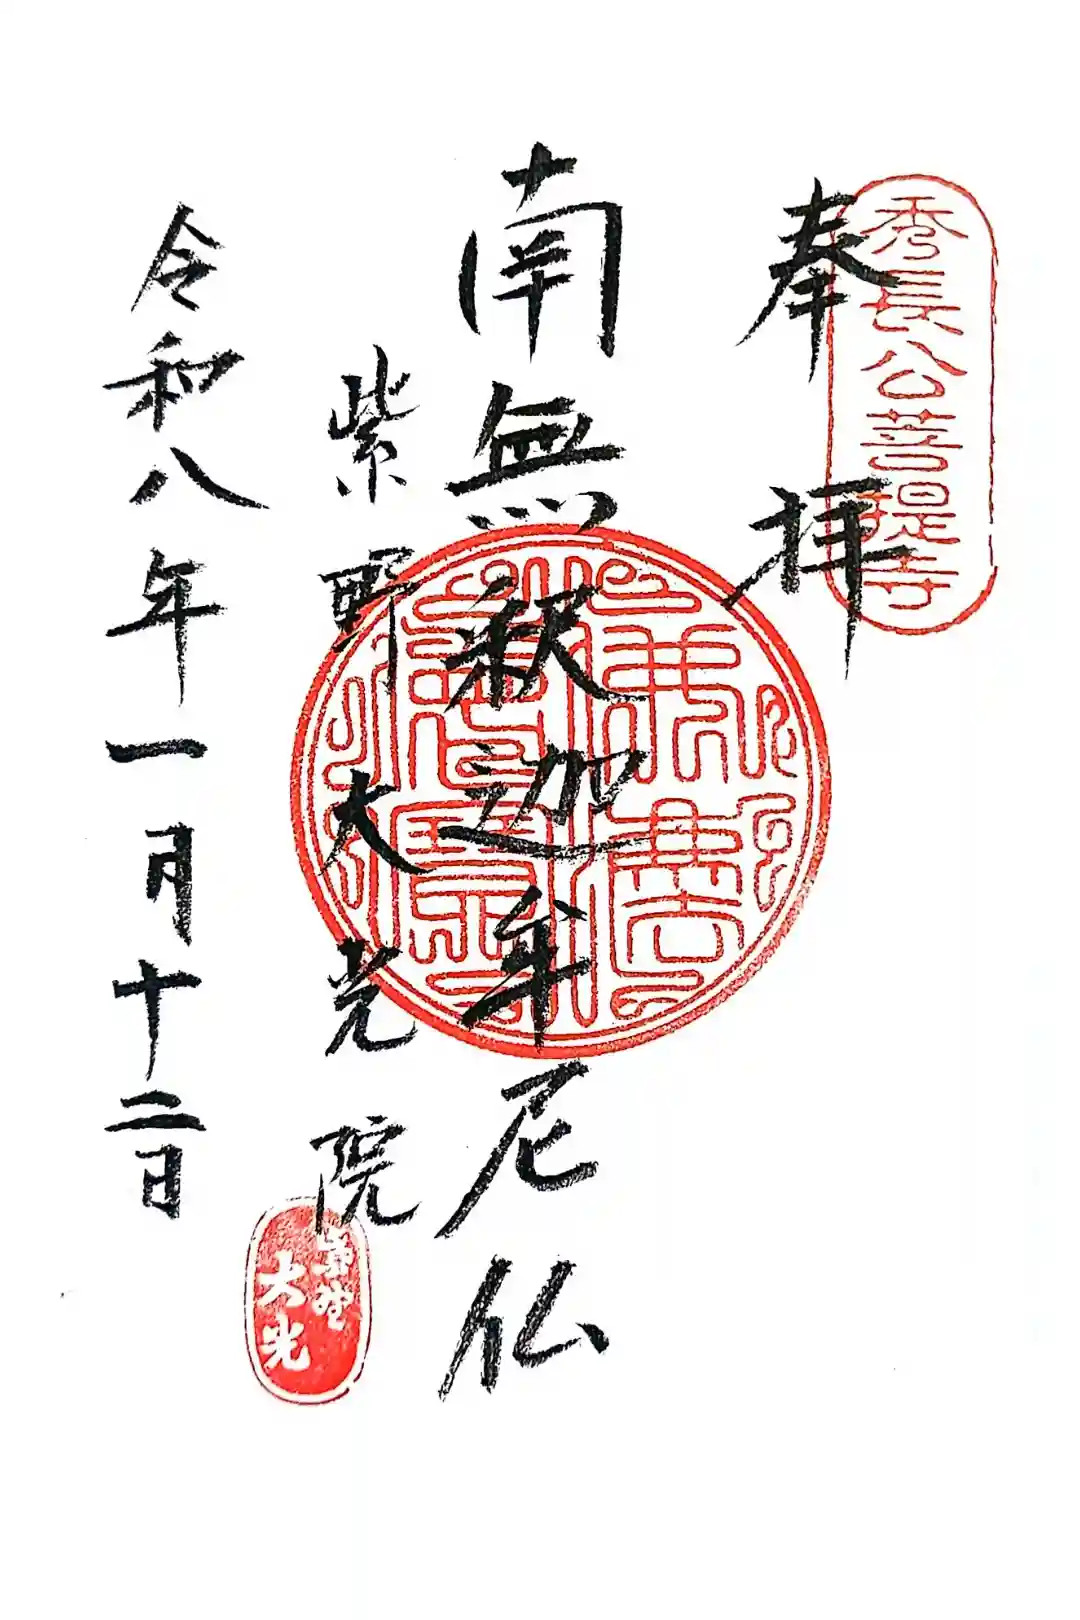 秀長公菩提寺
奉拝
南無釈迦牟尼仏
紫野大光院
令和八年一月十二日
紫野
大光